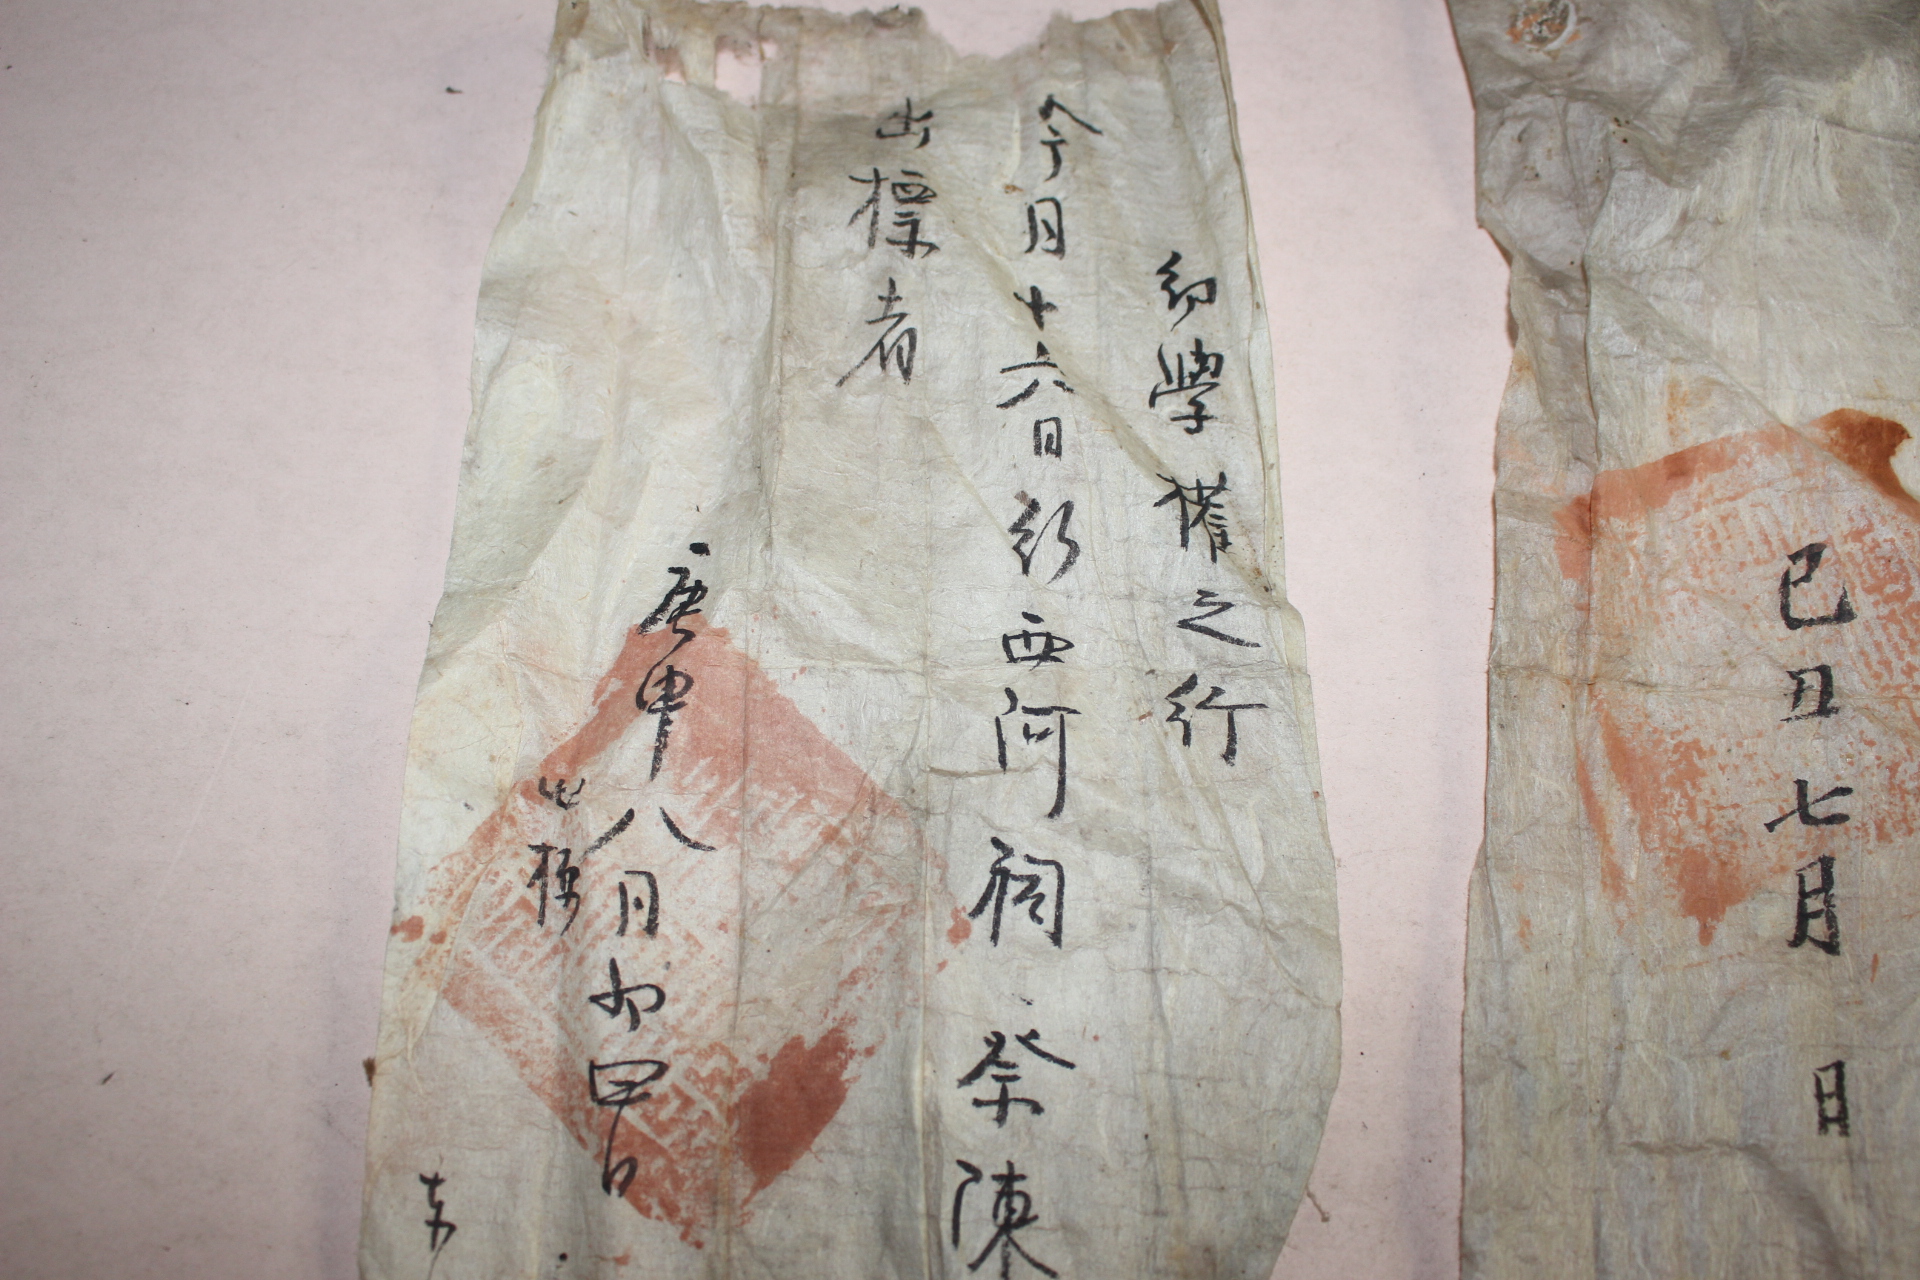 己丑七月 日
幼學權之行
今月十六日行西河祠祭陳
出標者
庚申八月初四日
出標